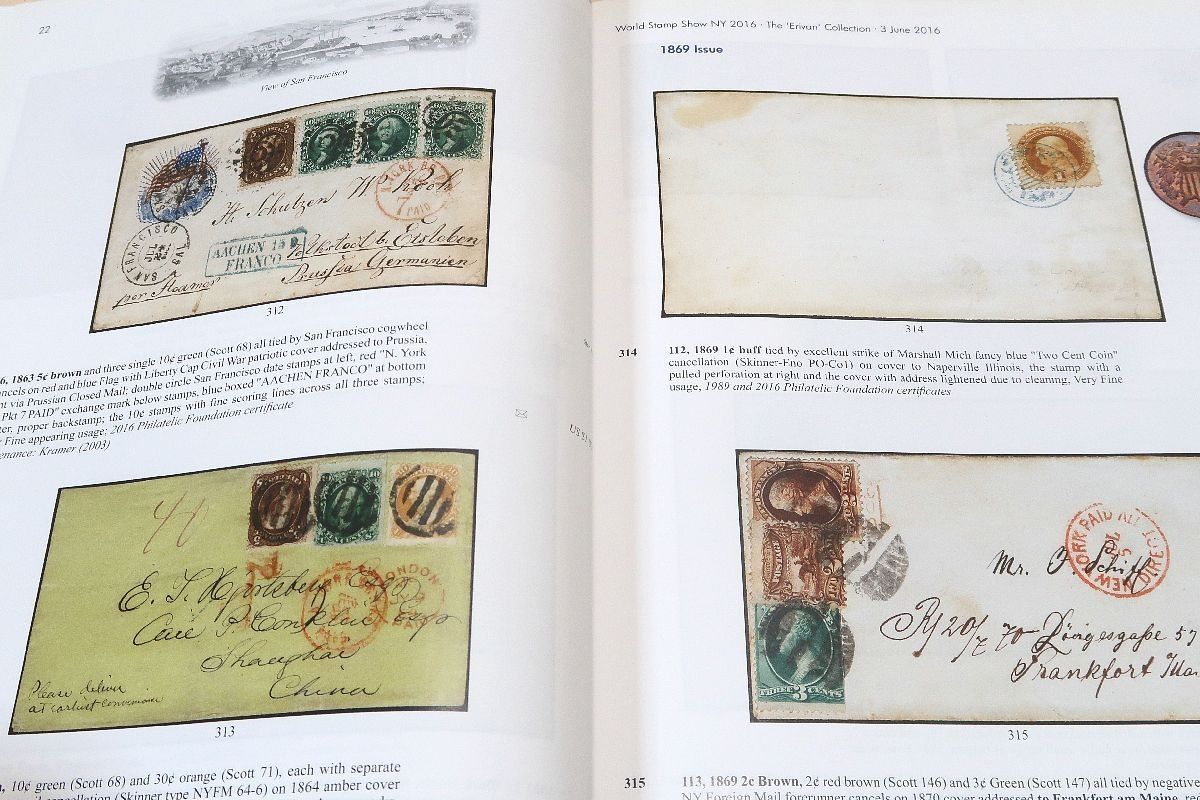 22
View of San Francisco
SAN FRANCISCO
CAL
per Steamer
AACHEN
FRANCO
N. YORK BR
7
PAID
Prussia Germanien
312
6, 1863 5¢ brown and three single 10¢ green (Scott 68) all tied by San Francisco cogwheel
ancels on red and blue Flag with Liberty Cap Civil War patriotic cover addressed to Prussia,
nt via Prussian Closed Mail, double circle San Francisco date stamps at left, red "N. York
Pkt 7 PAID" exchange mark below stamps, blue boxed "AACHEN FRANCO" at bottom
ter, proper backstamp; the 10¢ stamps with fine scoring lines across all three stamps;
Fine appearing usage; 2016 Philatelic Foundation certificate
enance: Kramer (2003)
LONDON
PAID
Shanghai
China
Please deliver
at earliest
313
10¢ green (Scott 68) and 30¢ orange (Scott 71), each with separate
cancellation (Skinner type NYFM 64-6) on 1864 amber cover
World Stamp Show NY 2016 · The 'Erivan' Collection · 3 June 2016
1869 Issue
314
314 112, 1869 1¢ buff tied by excellent strike of Marshall Mich fancy blue "Two Cent Coin"
cancellation (Skinner-Eno PO-Co1) on cover to Naperville Illinois, the stamp with a
pulled perforation at right and the cover with address lightened due to cleaning, Very Fine
usage, 1989 and 2016 Philatelic Foundation certificates
POSTAGE
THREE 3 CENTS
NEW YORK PAID ALL
DIRECT
Mr. J. Schiff
Frankfort
315
315 113, 1869 2c Brown, 2¢ red brown (Scott 146) and 3¢ Green (Scott 147) all tied by negative
NY Foreign Mail forerunner cancels on 1870 cover addressed to Frankfort am Maine, red